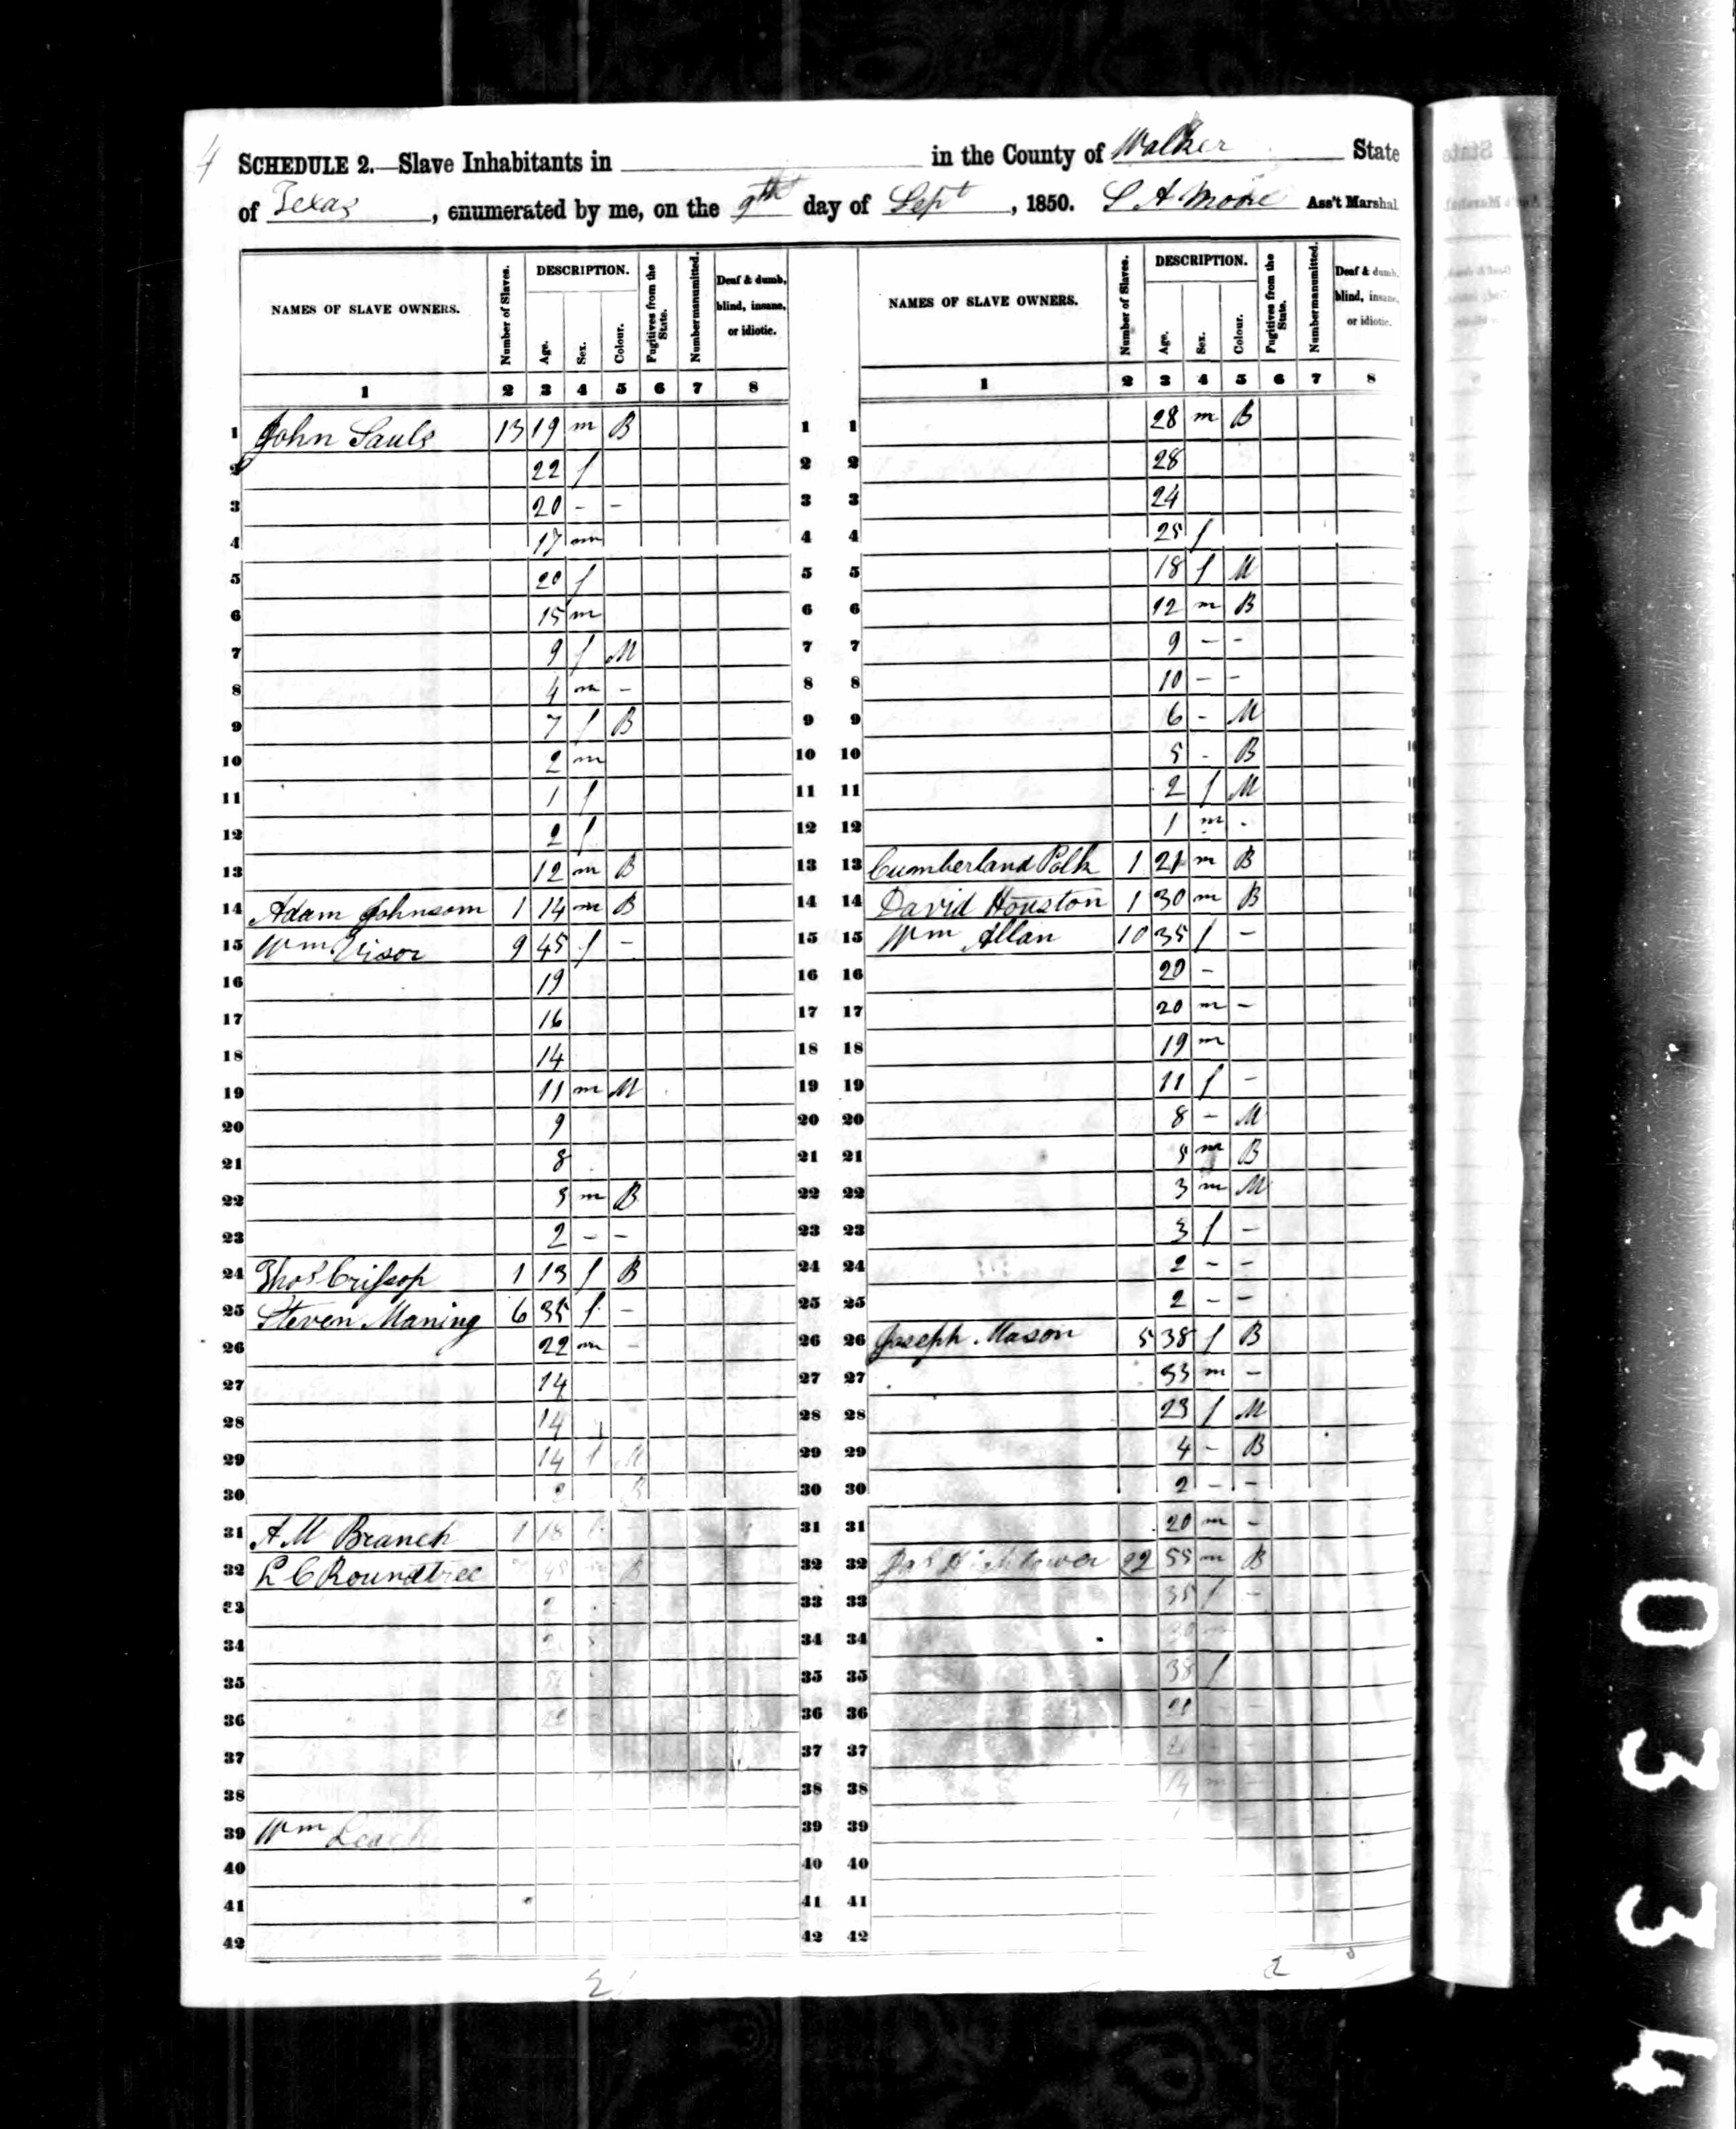 4
SCHEDULE 2.—Slave Inhabitants in in the County of Walker State
of Texas, enumerated by me, on the 9th day of Sept, 1850. S A Moore Ass't Marshal
NAMES OF SLAVE OWNERS. Number of Slaves. DESCRIPTION. Age. Sex. Colour. Fugitives from the State. Number manumitted. Deaf & dumb, blind, insane, or idiotic.
NAMES OF SLAVE OWNERS. Number of Slaves. DESCRIPTION. Age. Sex. Colour. Fugitives from the State. Number manumitted. Deaf & dumb, blind, insane, or idiotic.
1 2 3 4 5 6 7 8 1 2 3 4 5 6 7 8
1 John Sauls 13 19 m B 1
2 22 f 2
3 20 - - 3
4 17 m 4
5 20 f 5
6 15 m 6
7 9 f M 7
8 4 m - 8
9 7 f B 9
10 2 m 10
11 1 f 11
12 2 f 12
13 12 m B 13
14 Adam Johnsom 1 14 m B 14
15 Wm Visor 9 45 f - 15
16 19 16
17 16 17
18 14 18
19 11 m M 19
20 9 20
21 8 21
22 m B 22
23 2 - - 23
24 Thos Crissop 1 13 f B 24
25 Steven Maning 6 35 f - 25
26 22 m - 26
27 14 27
28 14 28
29 14 f M 29
30 B 30
31 A M Branch 1 18 31
32 L C Roundtree B 32
33 33
34 34
35 35
36 36
37 37
38 38
39 Wm Leach 39
40 40
41 41
42 42
1 28 m B
2 28
3 24
4 25 f
5 18 f M
6 12 m B
7 9 - -
8 10 - -
9 6 - M
10 5 - B
11 2 f M
12 1 m -
13 Cumberland Polk 1 21 m B
14 David Houston 1 30 m B
15 Wm Allan 10 35 f -
16 20 -
17 20 m -
18 19 m
19 11 f -
20 8 - M
21 5 m B
22 3 m M
23 3 f -
24 2 - -
25 2 - -
26 Joseph Mason 5 38 f B
27 m -
28 23 f M
29 4 - B
30 2 - -
31 20 m -
32 Jas Hightower 22 55 m B
33 35 f -
34
35 38 f
36
37
38 14 m -
39
40
41
42
2 2
0334